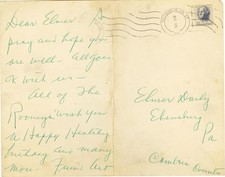 Dear Elmer
pray and hope you
are well - All goes
with us -
All of The
Rooneys wish you
a Happy Healthy
and many
more.
Elmer Daily
Ebensburg
Pa
Cambria
County